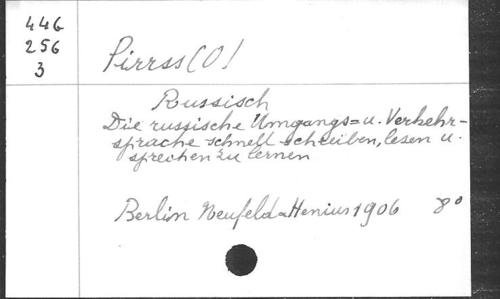 446
256
3
Pirrss (O)
Russisch
Die russische Umgangs= u. Verkehr-
sprache schnell schreiben, lesen u.
sprechen zu lernen
Berlin Neufeld a Henius 1906 8°